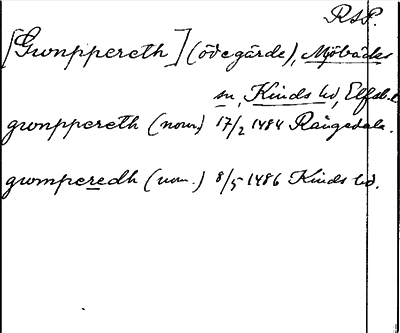 RSP.
[Gwnppereth] (ödegärde), Mjöbäcks
sn, Kinds hd, Elfsb. l.
gwnppereth (nom.) 17/2 1484 Rångedala.
gwmperedh (nom.) 8/5 1486 Kinds hd.